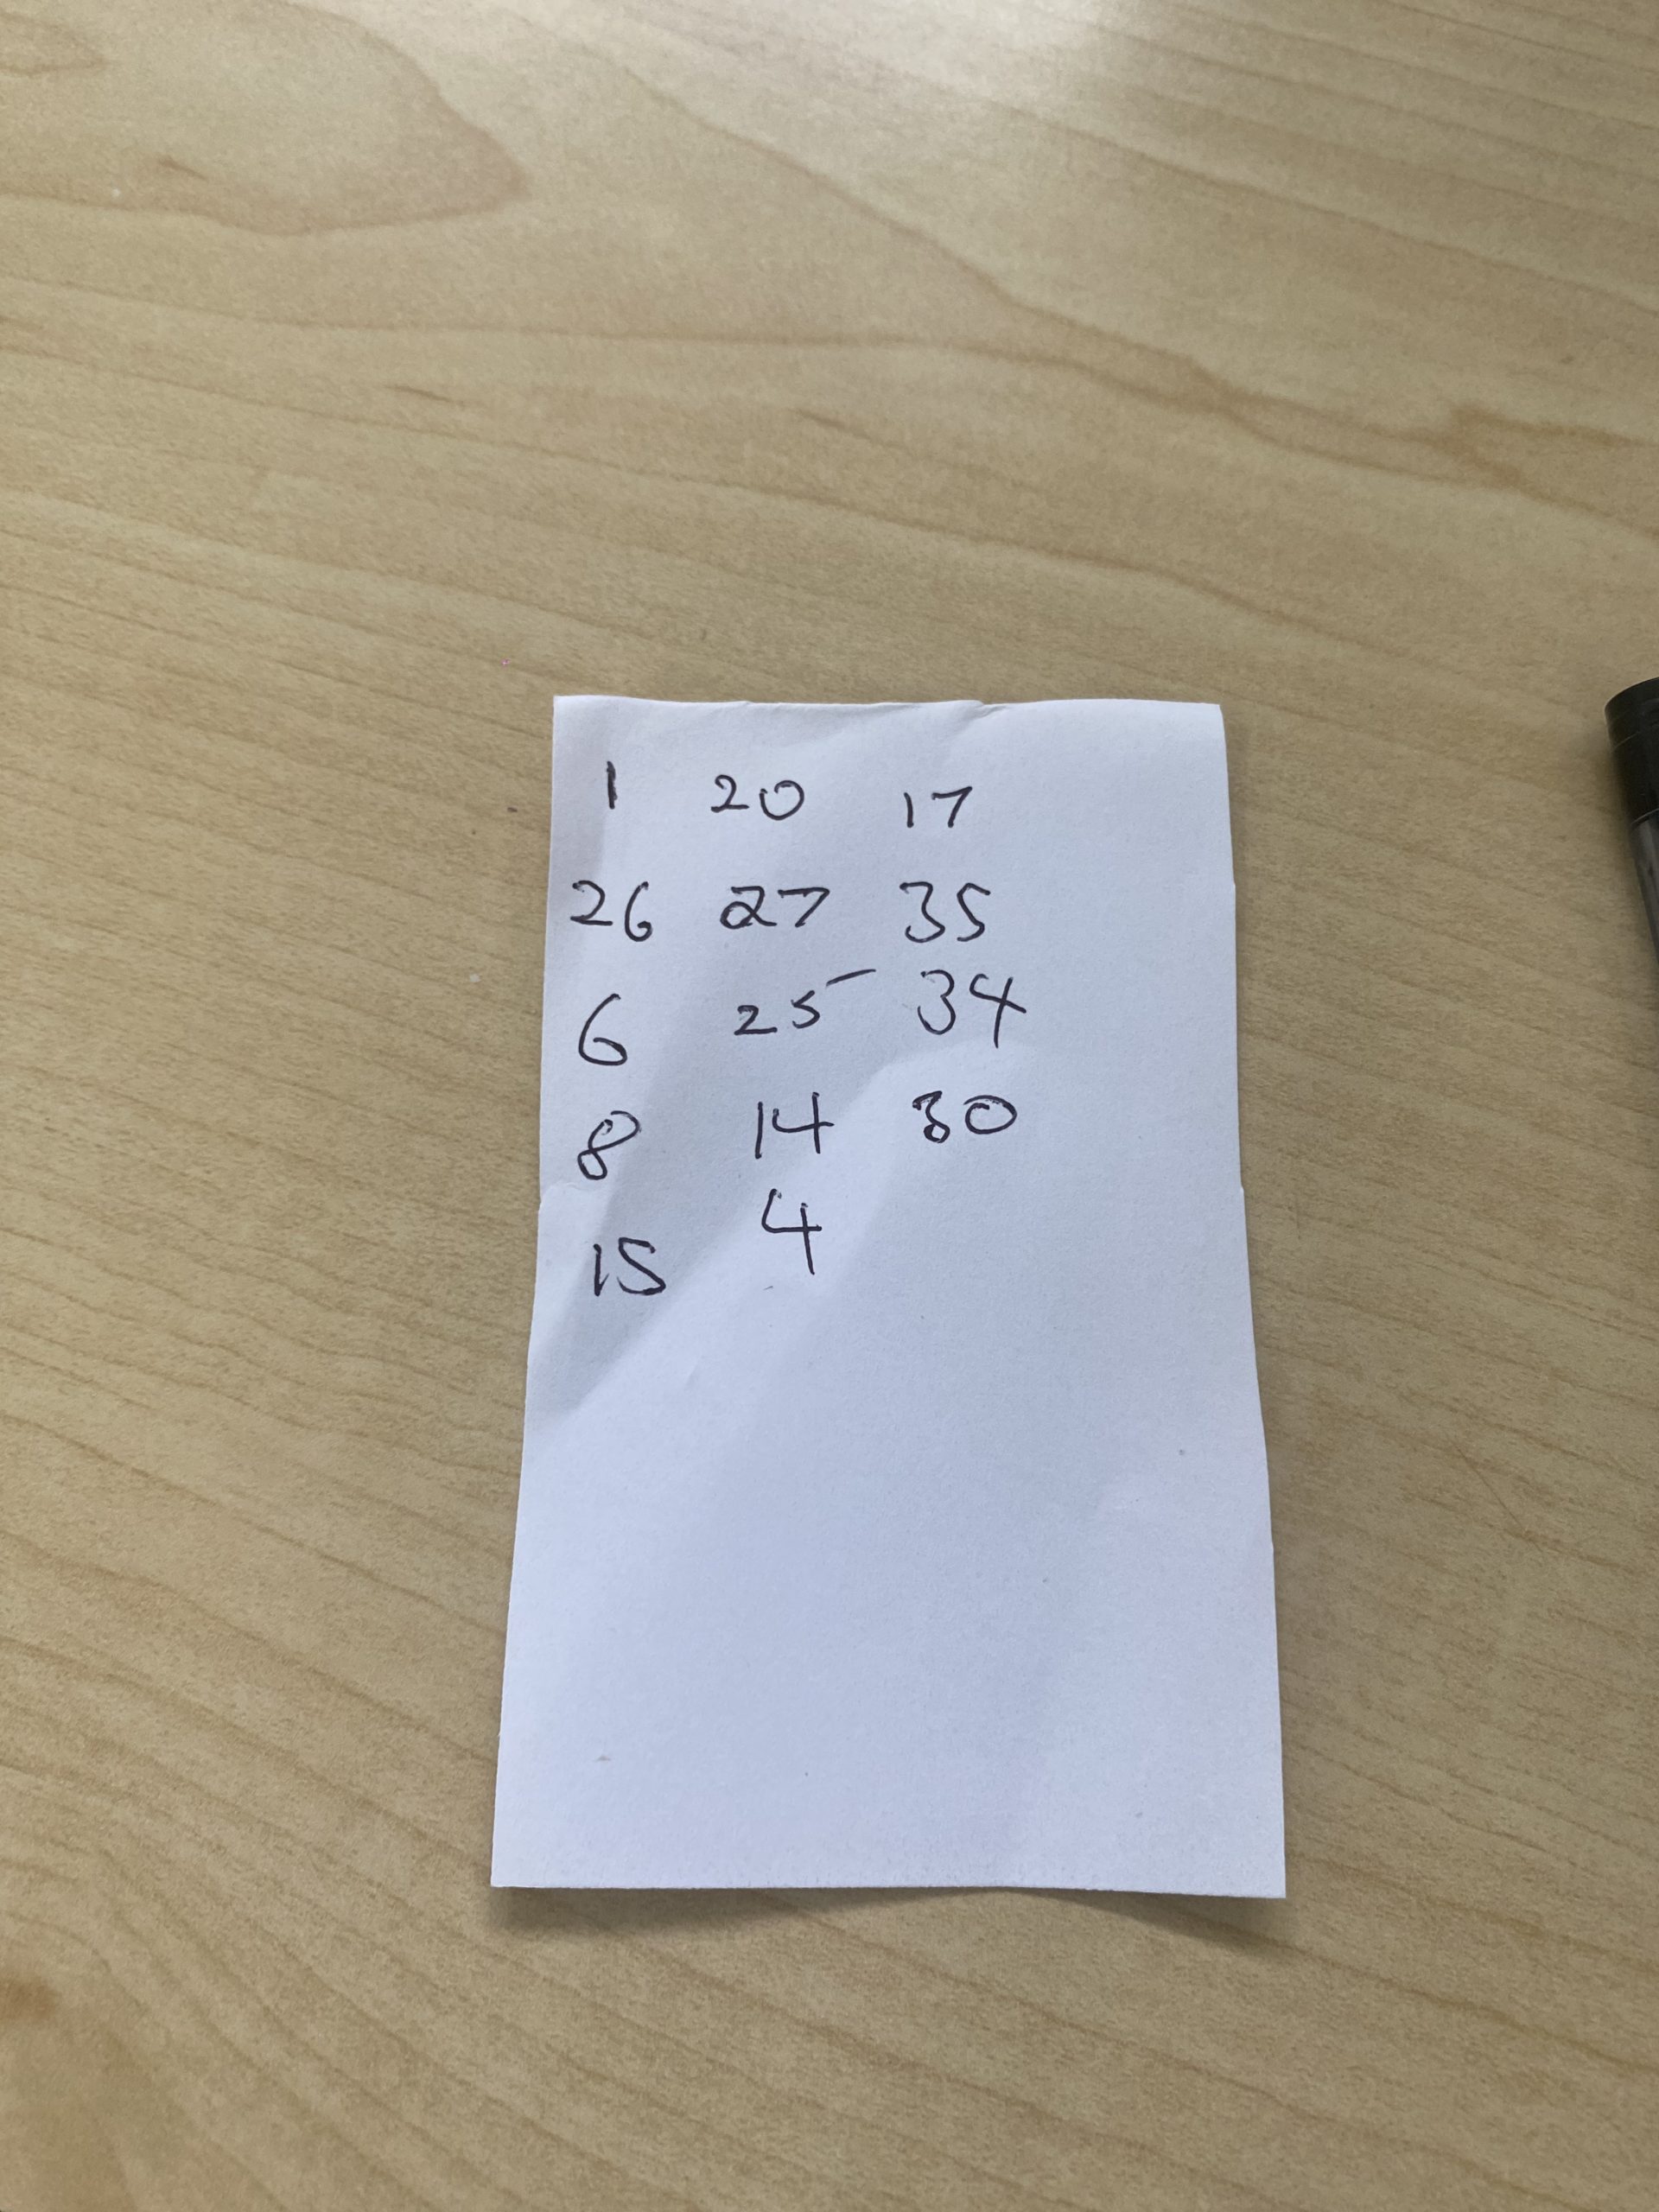 1 20 17
26 27 35
6 25 34
8 14 30
15 4